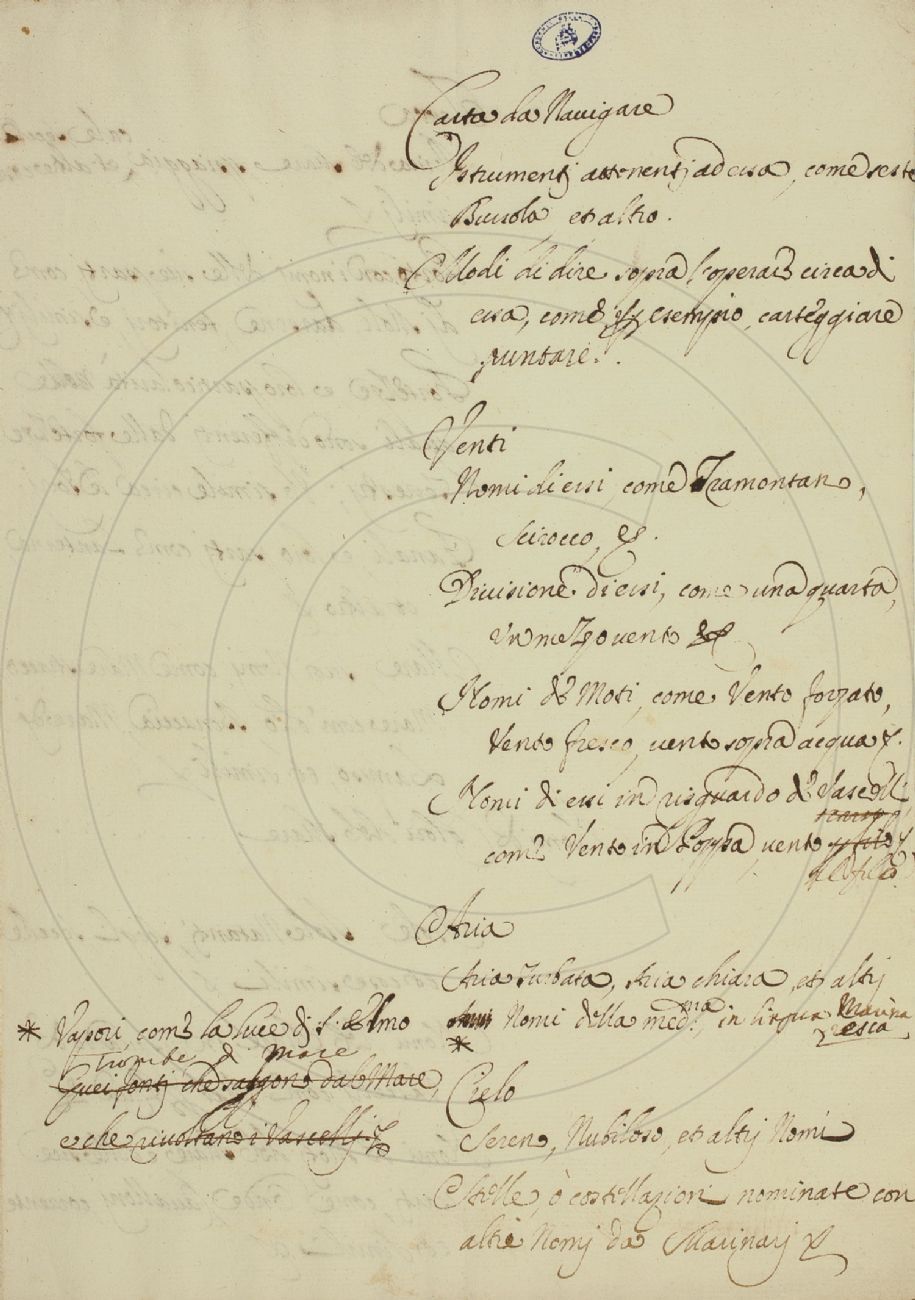 Carta da Nauigare
Istrumentj attenentj ad essa, come seste
Bussola et altro.
Modi di dire sopra l'operare circa di
essa, come per esempio, carteggiare
puntare.
Venti
Nomi di essi come Tramontano,
Scirocco, &.
Diuisione di essi, come una quarta,
un mezo uento &
Nomi de Moti, come Vento forzato,
Vento fresco, uento sopra acqua &.
Nomi di essi in risguardo de Vascelli
scarso
come Vento in Poppa, uento
Aria
Aria turbata, Aria chiara, et altrj
Nomi della med.ma, in lingua Marina
resca
*
* Vapori, come la luce di S. Elmo
Trombe di Mare
Quei fontj che salgono dal Mare,
e che riuoltano i Vascellj &
Cielo
Sereno, Nubiloso, et altrj Nomi
Stelle, ò costellazioni nominate con
altri Nomj da Marinarj &